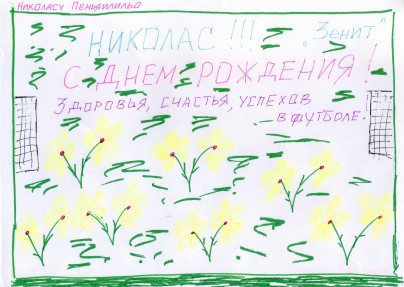 Николасу Пеньяилильо
НИКОЛАС !!! „Зенит"
С ДНЕМ РОЖДЕНИЯ !
Здоровья, счастья, успехов
в футболе!